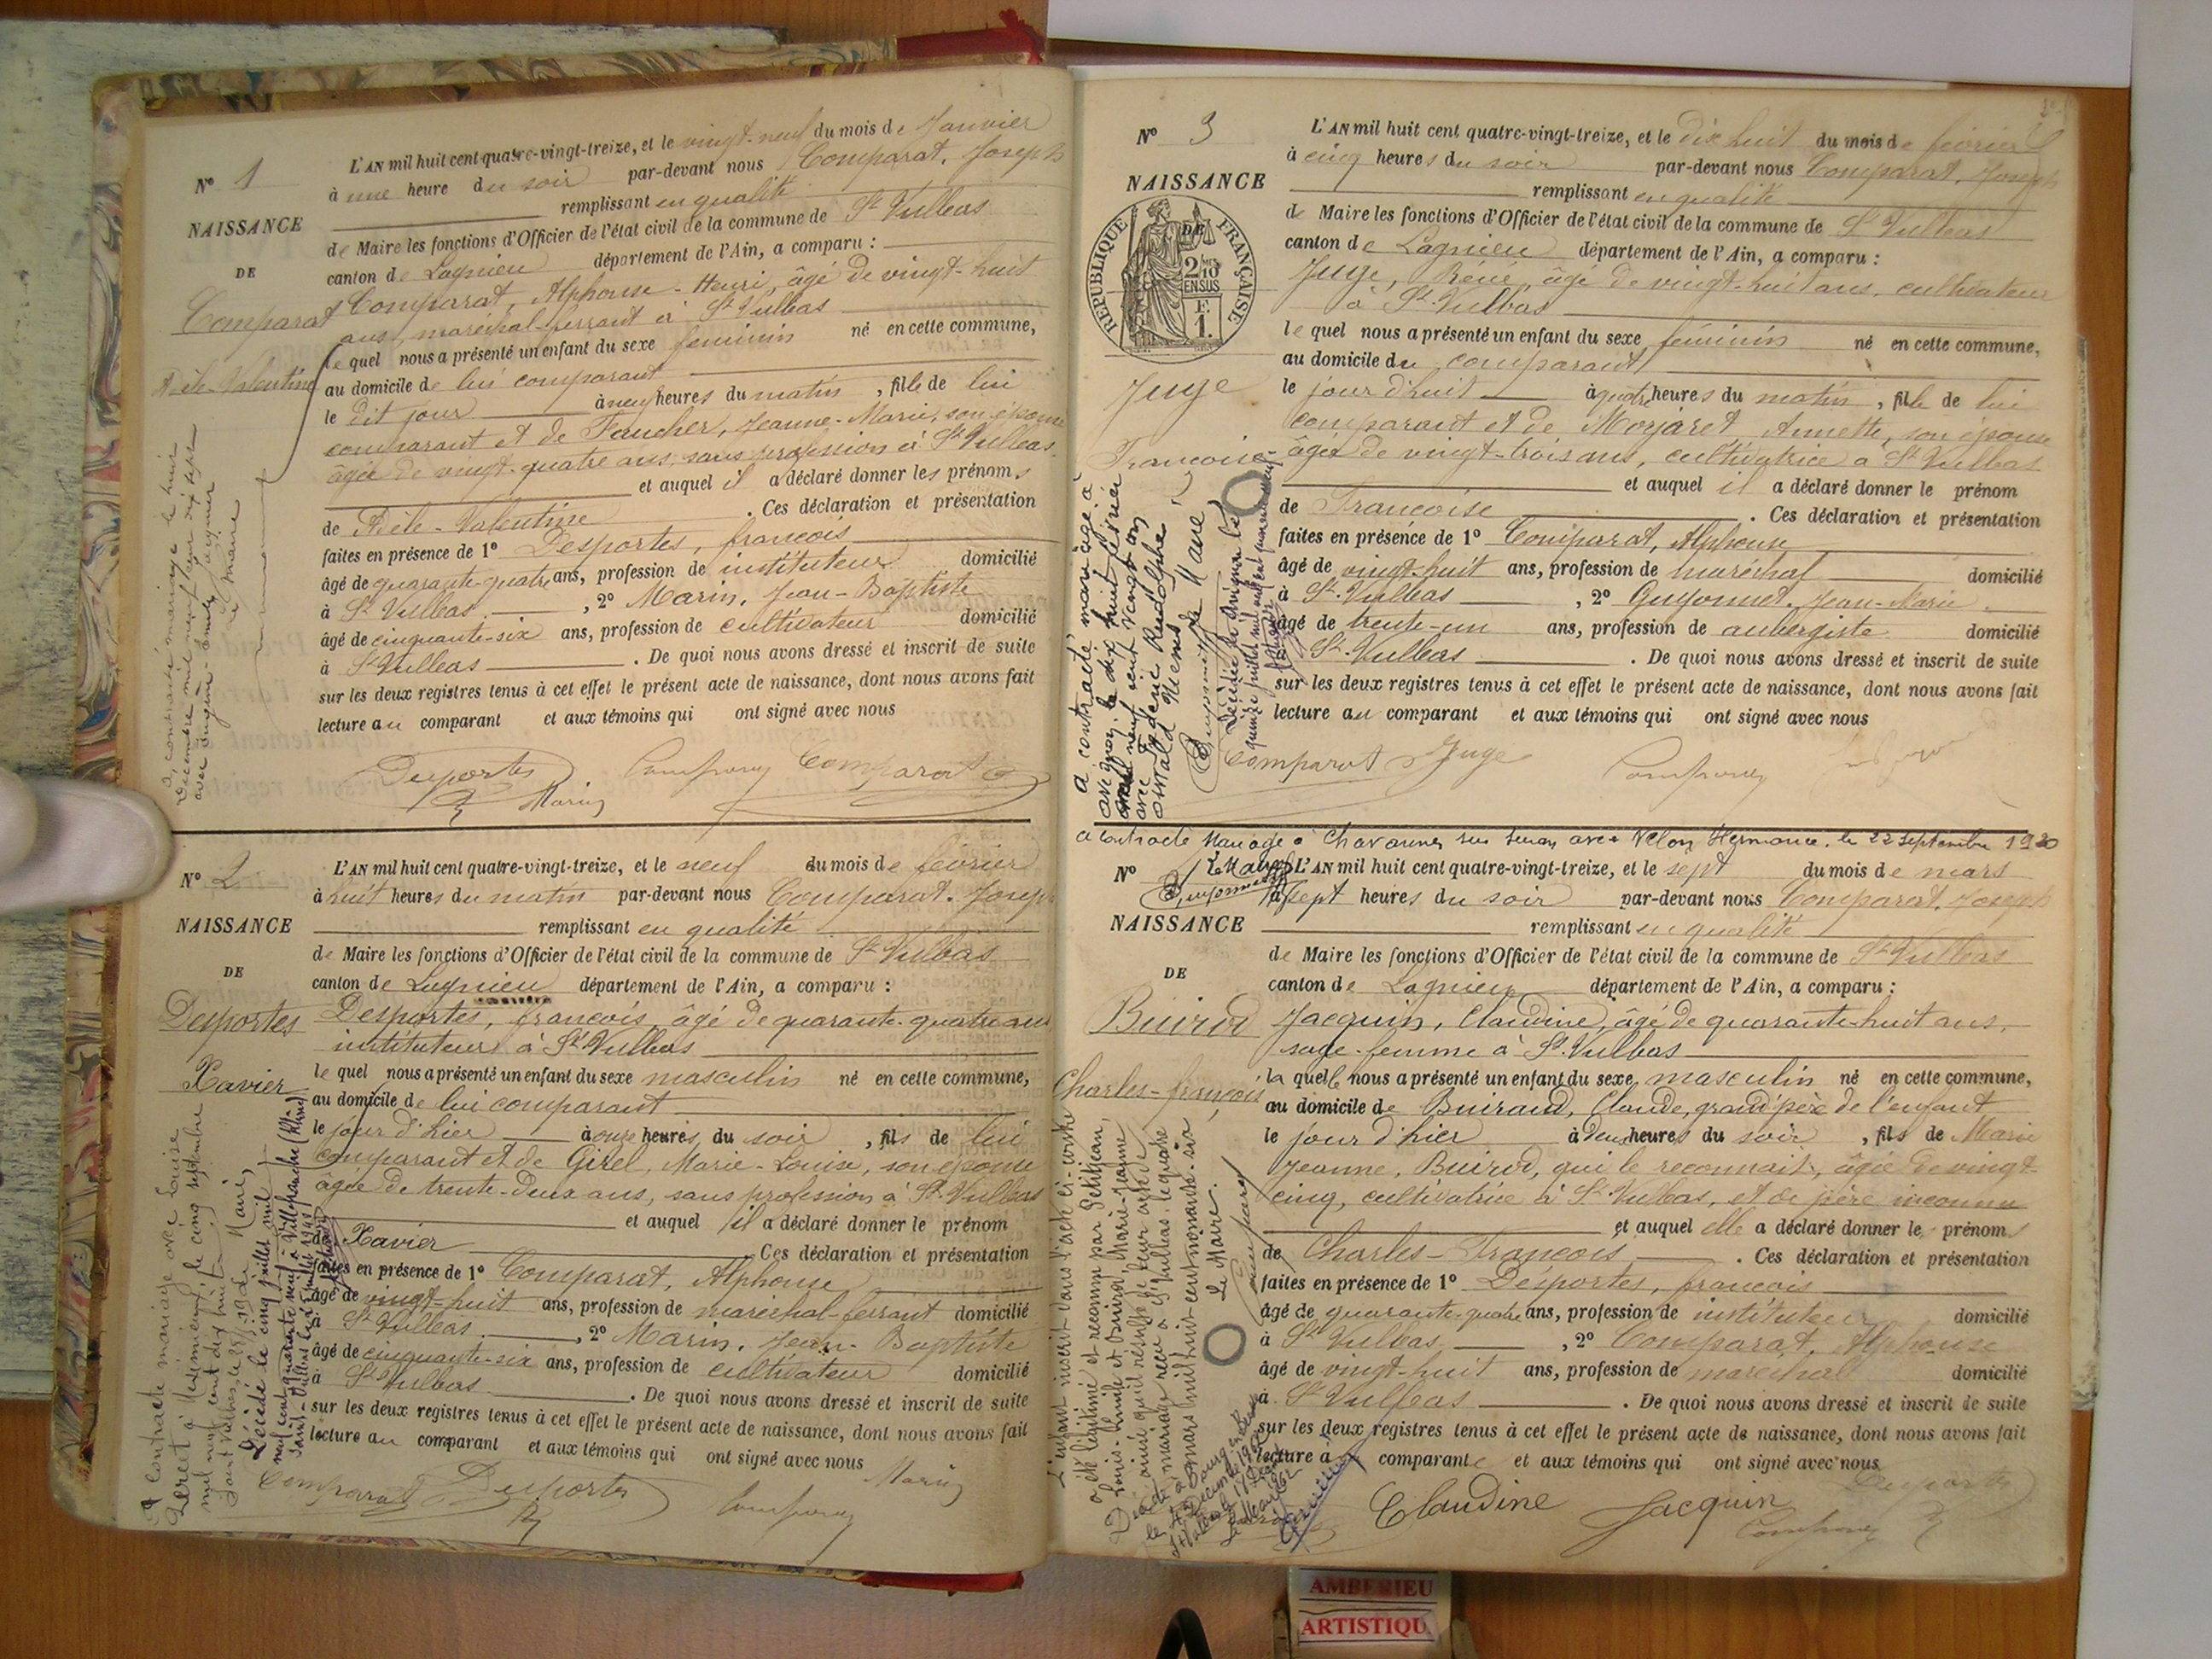 N° 1
NAISSANCE
DE
Comparat
Adèle-Valentine
L'AN mil huit cent quatre-vingt-treize, et le vingt-neuf du mois de Janvier
à une heure du soir par-devant nous Comparat, Joseph
remplissant en qualité
de Maire les fonctions d'Officier de l'état civil de la commune de St Vulbas
canton de Lagnieu département de l'Ain, a comparu :
Comparat, Alphonse-Henri, âgé de vingt-huit
ans, maréchal-ferrant à St Vulbas
le quel nous a présenté un enfant du sexe féminin né en cette commune,
au domicile de lui comparant
le dit jour à neuf heures du matin, fille de lui
comparant et de Faucher, Jeanne-Marie, son épouse
âgée de vingt-quatre ans, sans profession à St Vulbas
et auquel il a déclaré donner les prénoms
de Adèle-Valentine. Ces déclaration et présentation
faites en présence de 1° Desportes, françois
âgé de quarante-quatre ans, profession de instituteur domicilié
à St Vulbas, 2° Marin, Jean-Baptiste
âgé de cinquante-six ans, profession de cultivateur domicilié
à St Vulbas. De quoi nous avons dressé et inscrit de suite
sur les deux registres tenus à cet effet le présent acte de naissance, dont nous avons fait
lecture au comparant et aux témoins qui ont signé avec nous
Desportes Comparat
Marin
a contracté mariage le huit
décembre mil neuf cent dix sept
avec
le maire
N° 2
NAISSANCE
DE
Desportes
Xavier
L'AN mil huit cent quatre-vingt-treize, et le neuf du mois de février
à huit heures du matin par-devant nous Comparat, Joseph
remplissant en qualité
de Maire les fonctions d'Officier de l'état civil de la commune de St Vulbas
canton de Lagnieu département de l'Ain, a comparu :
Desportes, françois, âgé de quarante-quatre ans
instituteur à St Vulbas
le quel nous a présenté un enfant du sexe masculin né en cette commune,
au domicile de lui comparant
le jour d'hier à onze heures du soir, fils de lui
comparant et de Girel, Marie-Louise, son épouse
âgée de trente-deux ans, sans profession à St Vulbas
et auquel il a déclaré donner le prénom
de Xavier. Ces déclaration et présentation
faites en présence de 1° Comparat, Alphonse
âgé de vingt-huit ans, profession de maréchal-ferrant domicilié
à St Vulbas, 2° Marin, Jean-Baptiste
âgé de cinquante-six ans, profession de cultivateur domicilié
à St Vulbas. De quoi nous avons dressé et inscrit de suite
sur les deux registres tenus à cet effet le présent acte de naissance, dont nous avons fait
lecture au comparant et aux témoins qui ont signé avec nous
Comparat Desportes Marin
A contracté mariage avec Louise
à Meximieux, le cinq septembre
mil neuf cent dix huit
Saint Vulbas, le
Maire,
Décédé le cinq juillet mil
neuf cent quarante neuf à Villefranche (Rhône)
Saint-Vulbas le
N° 3
NAISSANCE
DE
RÉPUBLIQUE FRANÇAISE
2/10
EN SUS
F.
1.
Juge
Françoise
L'AN mil huit cent quatre-vingt-treize, et le dix huit du mois de février
à cinq heures du soir par-devant nous Comparat, Joseph
remplissant en qualité
de Maire les fonctions d'Officier de l'état civil de la commune de St Vulbas
canton de Lagnieu département de l'Ain, a comparu :
Juge, René, âgé de vingt-huit ans, cultivateur
à St Vulbas
le quel nous a présenté un enfant du sexe féminin né en cette commune,
au domicile du comparant
le jour d'huit à quatre heures du matin, fille de lui
comparant et de Morjaret Annette, son épouse
âgée de vingt-trois ans, cultivatrice à St Vulbas
et auquel il a déclaré donner le prénom
de Françoise. Ces déclaration et présentation
faites en présence de 1° Comparat, Alphonse
âgé de vingt-huit ans, profession de maréchal domicilié
à St Vulbas, 2° Guyonnet, Jean-Marie
âgé de trente-un ans, profession de aubergiste domicilié
à St Vulbas. De quoi nous avons dressé et inscrit de suite
sur les deux registres tenus à cet effet le présent acte de naissance, dont nous avons fait
lecture au comparant et aux témoins qui ont signé avec nous
Comparat Juge
a contracté mariage à
Avignon, le dix huit février
mil neuf cent vingt
avec Rudolphe
Oswald
le Maire
Décédée à Avignon le
quinze juillet mil neuf cent
a contracté Mariage à Chavannes sur Suran avec Velon Hermance le 22 septembre 1920
Le Maire
N°
NAISSANCE
DE
Buirod
Charles-françois
L'AN mil huit cent quatre-vingt-treize, et le sept du mois de mars
à sept heures du soir par-devant nous Comparat, Joseph
remplissant en qualité
de Maire les fonctions d'Officier de l'état civil de la commune de St Vulbas
canton de Lagnieu département de l'Ain, a comparu :
Jacquin, Claudine, âgé de quarante-huit ans,
sage-femme à St Vulbas
la quelle nous a présenté un enfant du sexe masculin né en cette commune,
au domicile de Buiraud, Claude, grand'père de l'enfant
le jour d'hier à deux heures du soir, fils de Marie
Jeanne, Buirod, qui le reconnait, âgée de vingt-
cinq, cultivatrice à St Vulbas, et de père inconnu
et auquel elle a déclaré donner les prénoms
de Charles-François. Ces déclaration et présentation
faites en présence de 1° Desportes, françois
âgé de quarante-quatre ans, profession de instituteur domicilié
à St Vulbas, 2° Comparat, Alphonse
âgé de vingt-huit ans, profession de maréchal domicilié
à St Vulbas. De quoi nous avons dressé et inscrit de suite
sur les deux registres tenus à cet effet le présent acte de naissance, dont nous avons fait
lecture à comparante et aux témoins qui ont signé avec nous
Claudine Jacquin Desportes
L'enfant inscrit dans l'acte ci-contre
a été légitimé et reconnu par Petitjean,
Louis- et Buirod Marie-Jeanne
ainsi qu'il résulte de leur acte de
mariage reçu à St Vulbas, le quatre
mars mil huit cent nonante-six
Le Maire.
Décédé à Bourg en Bresse
le 4 Décembre
AMBERIEU
ARTISTIQU